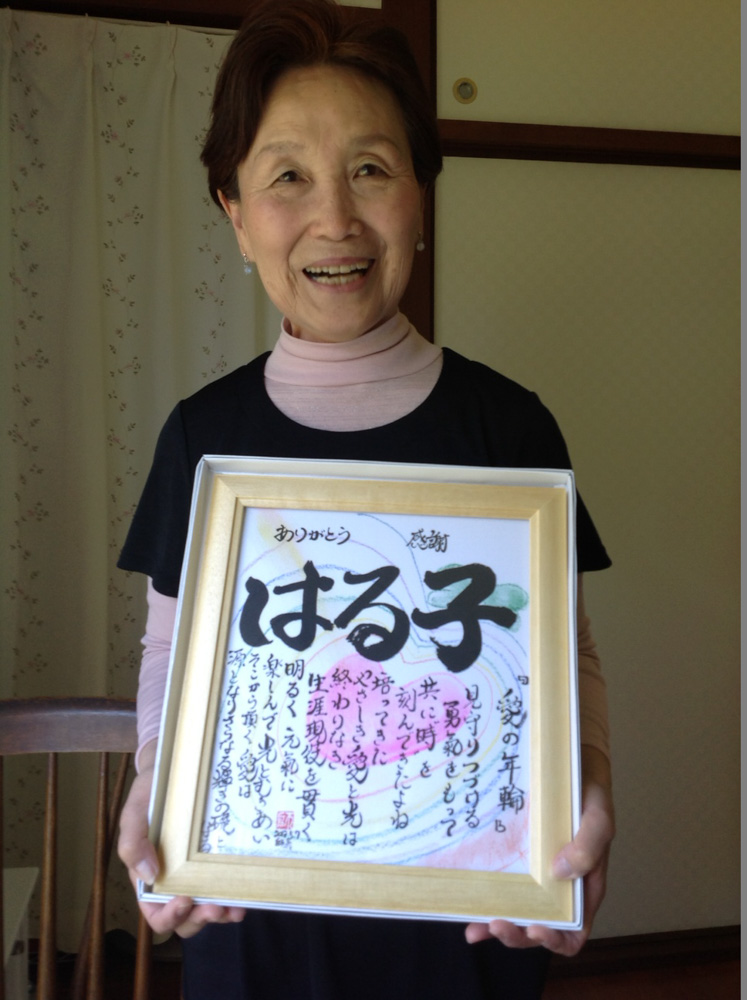 ありがとう 感謝
はる子
『愛の年輪』
見守りつづける
勇氣をもって
共に時を
刻んできたよね
培ってきた
やさしき愛と光は
終わりなき
生涯現役を貫く
明るく元氣に
楽しんで光とむきあい
そこから頂く愛は
源となりさらなる